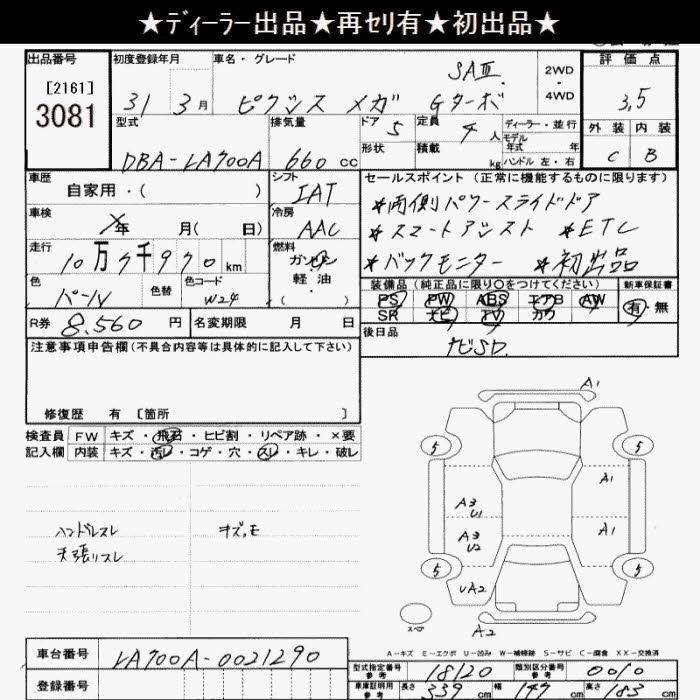 ★ディーラー出品★再セリ有★初出品★
出品番号 初度登録年月 車名・グレード 評価点
[2161]
3081
31 3月 ピクシス メガ SAⅢ Gターボ 2WD・4WD 3.5
型式 排気量 ドア 5 定員 4人 ディーラー・並行 外装 内装
モデル年式 年
DBA-LA700A 660cc 形状 積載 kg ハンドル 左・右 C B
車歴 シフト セールスポイント (正常に機能するものに限ります)
自家用・( ) IAT
★両側パワースライドドア
車検 冷房
年 月( 日) AAC ★スマートアシスト ★ETC
走行 燃料
10万7千970km ガソリン
軽油
( )
★バックモニター ★初出品
色 色替 色コード 装備品 (純正品に限り○をつけてください) 新車保証書
パール W24 PS PW ABS エアB AW 有・無
R券 8,560円 名変期限 月 日 SR ナビ TV カワ
後日品
ナビSD.
注意事項申告欄 (不具合内容等は具体的に記入して下さい)
修復歴 有 [箇所 ]
検査員 FW キズ・飛石・ヒビ割・リペア跡・×要
記入欄 内装 キズ・汚レ・コゲ・穴・スレ・キレ・破レ
A1
5 5
A1
A3
U1
A3
U2
A1
ハンドルスレ
天張リスレ
5 5
UA2
スペア
A2
A-キズ E-エクボ U-凹み W-補修跡 S-サビ C-腐食 XX-交換済
車台番号 LA700A-0021290
型式指定番号 参考 18120 類別区分番号 参考 0010
登録番号
車庫証明用 参考 長さ 339cm 幅 147cm 高さ 183cm